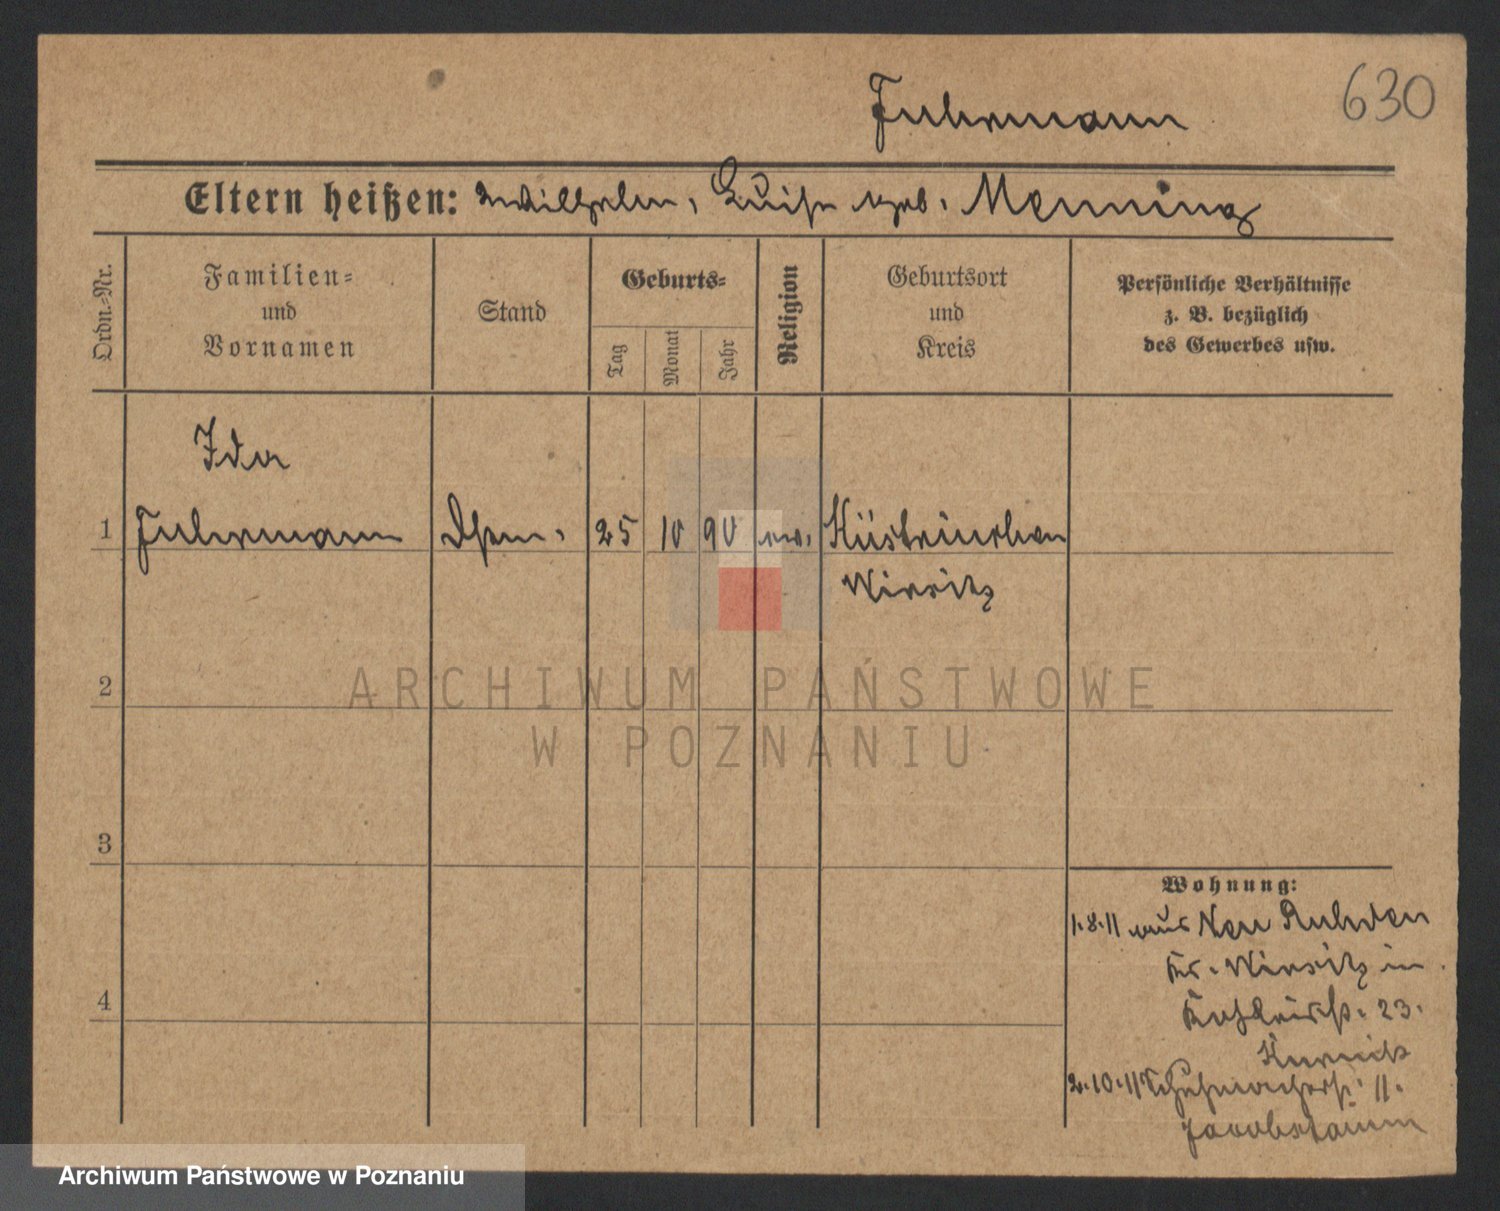 630
Fuhrmann
Eltern heißen: Wilhelm, Luise geb. Menning
Ordn.-Nr.
Familien- und Vornamen
Stand
Geburts-
Tag
Monat
Jahr
Religion
Geburtsort und Kreis
Persönliche Verhältnisse
z. B. bezüglich
des Gewerbes usw.
Ida
1 Fuhrmann 25 10 90 ev.
Wirsitz
2
3
4
Wohnung:
1.8.11 aus Neu Ruhden
Kr. Wirsitz in
23.
2.10.11 Schuhmacherstr. 11.
ARCHIWUM PAŃSTWOWE
W POZNANIU
Archiwum Państwowe w Poznaniu